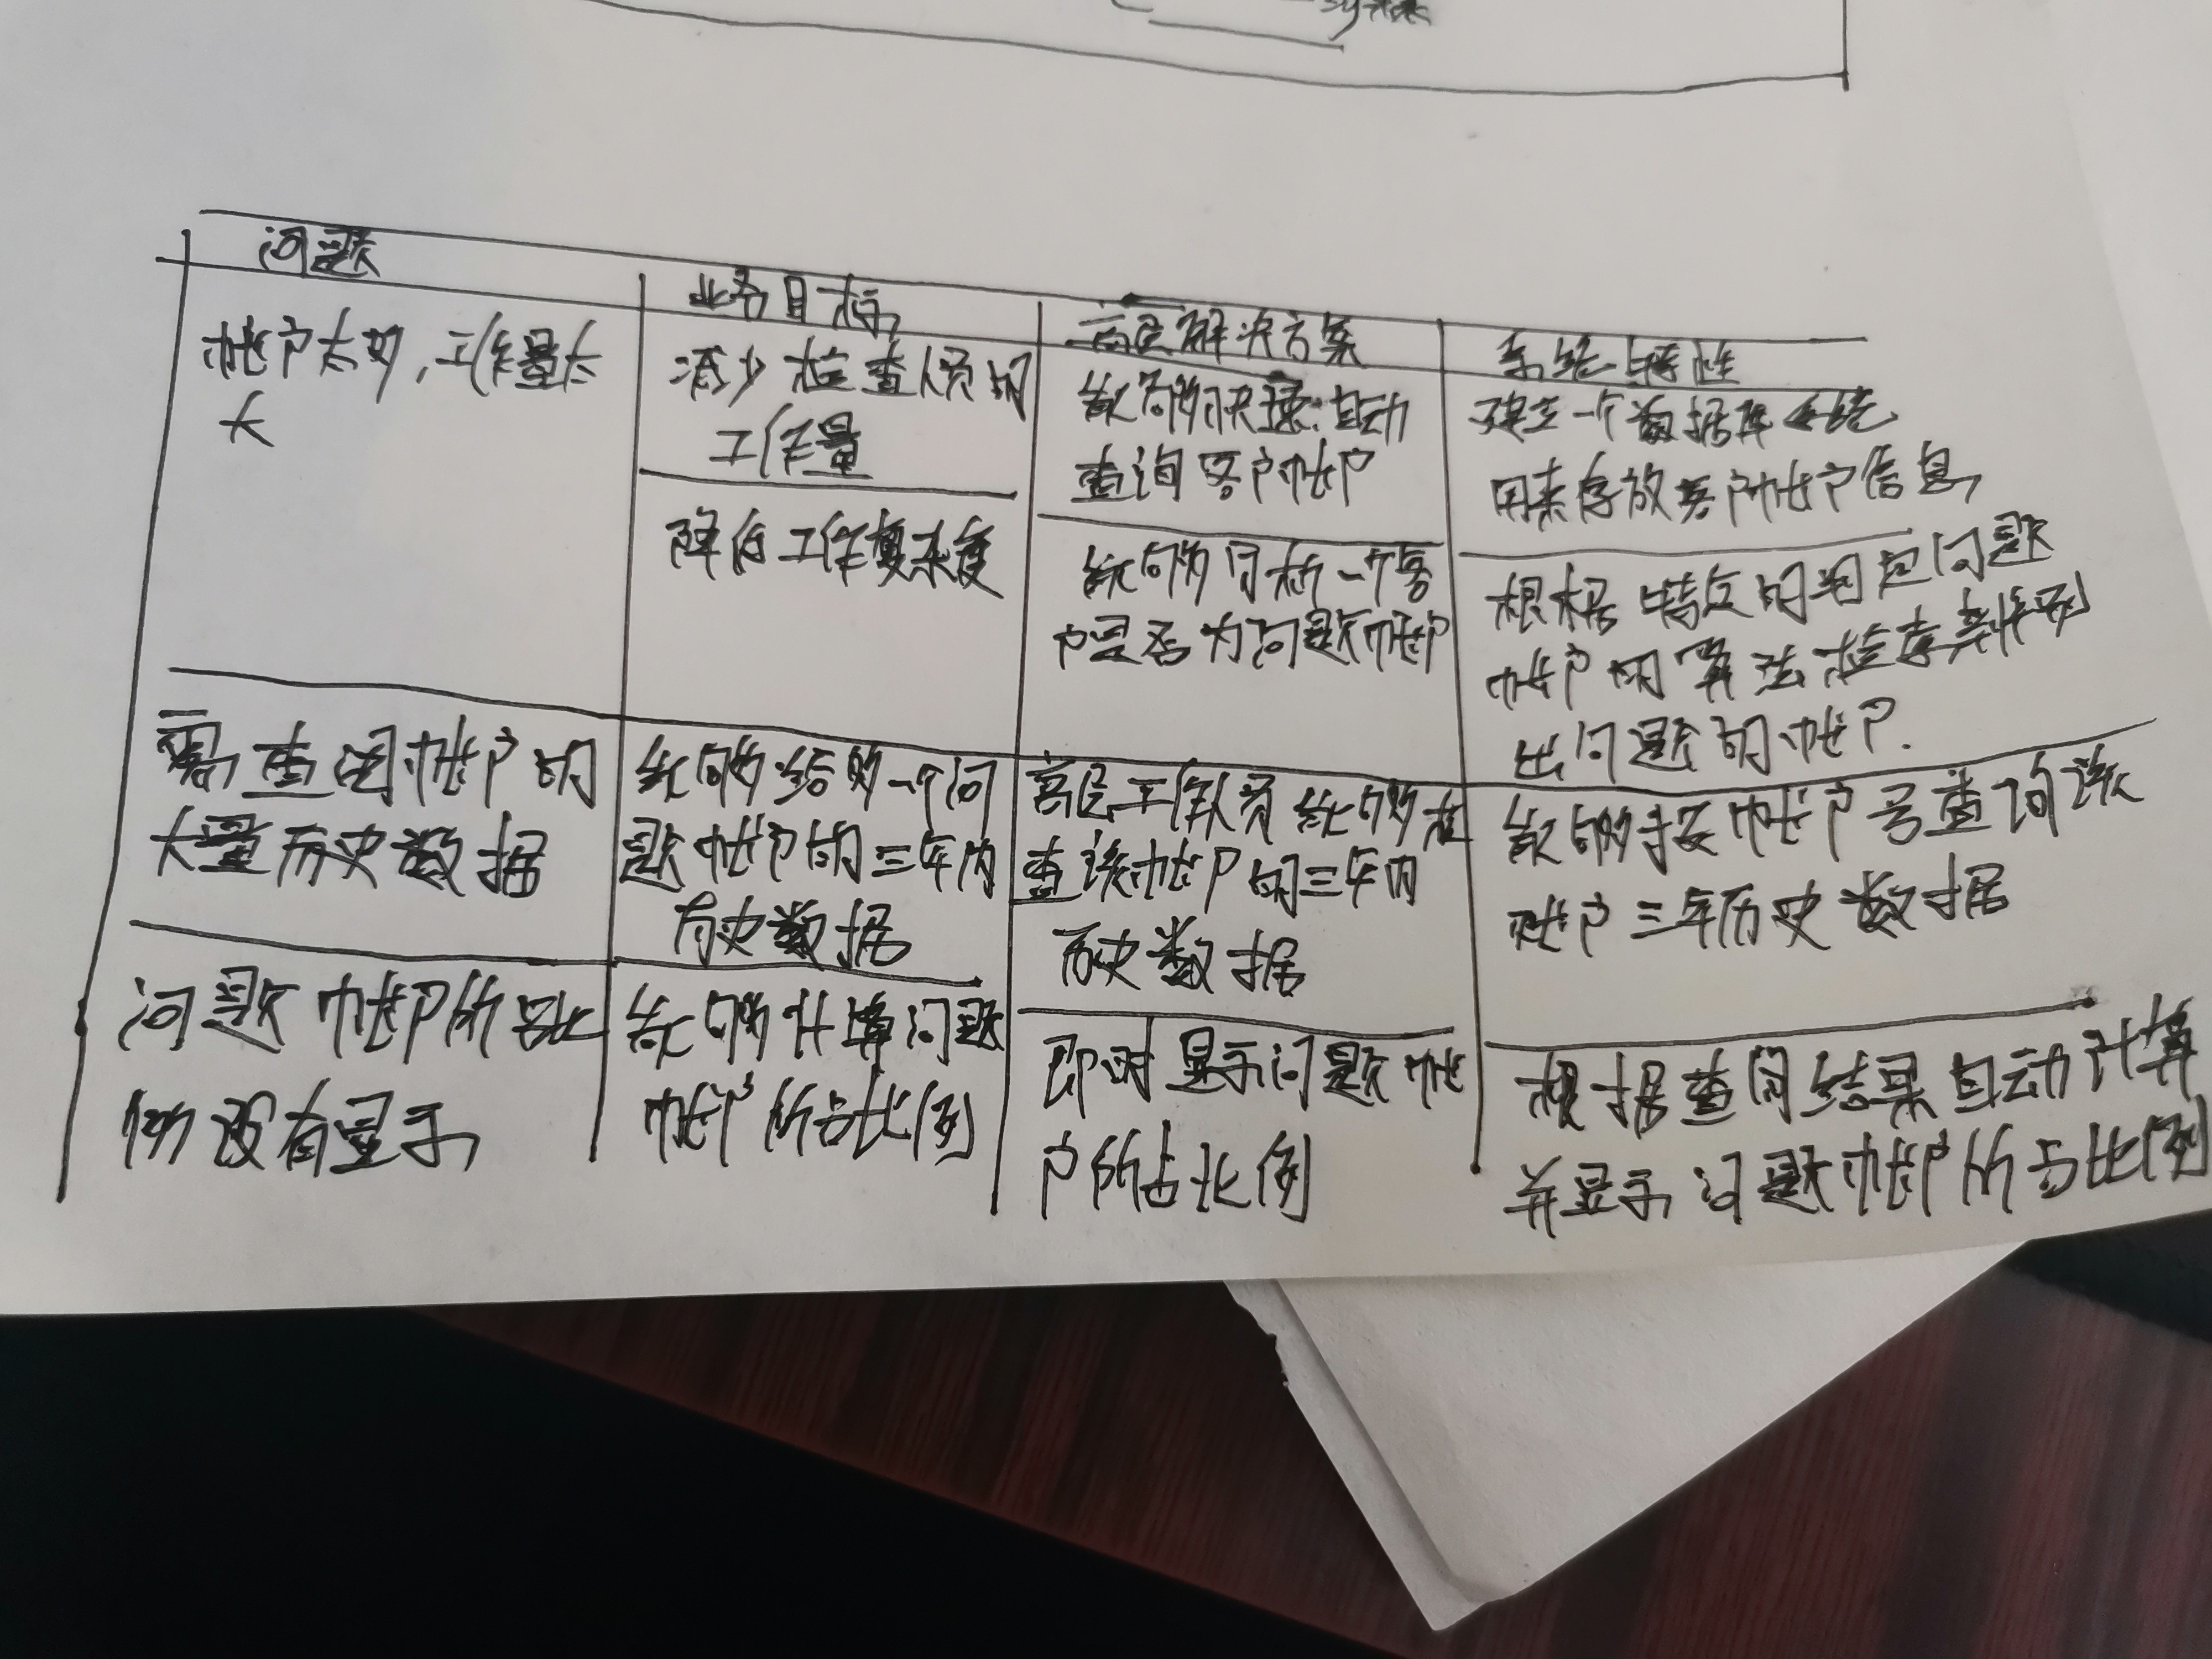 问题
业务目标
高层解决方案
系统特性
帐户太多,工作量太
大
减少检查人员的
工作量
能够快速自动
查询客户帐户
建立一个数据库系统
用来存放客户帐户信息
降低工作复杂度
能够分析一个客
户是否为问题帐户
根据特定的判定问题
帐户的算法检查并判别
出问题的帐户.
需查阅帐户的
大量历史数据
能够给的一个问
题帐户的三年内
历史数据
高层工作人员能够检
查该帐户的三年内
历史数据
能够按帐户号查询该
帐户三年历史数据
问题帐户所占比
例没有显示
能够计算问题
帐户所占比例
即时显示问题帐
户所占比例
根据查询结果自动计算
并显示问题帐户所占比例